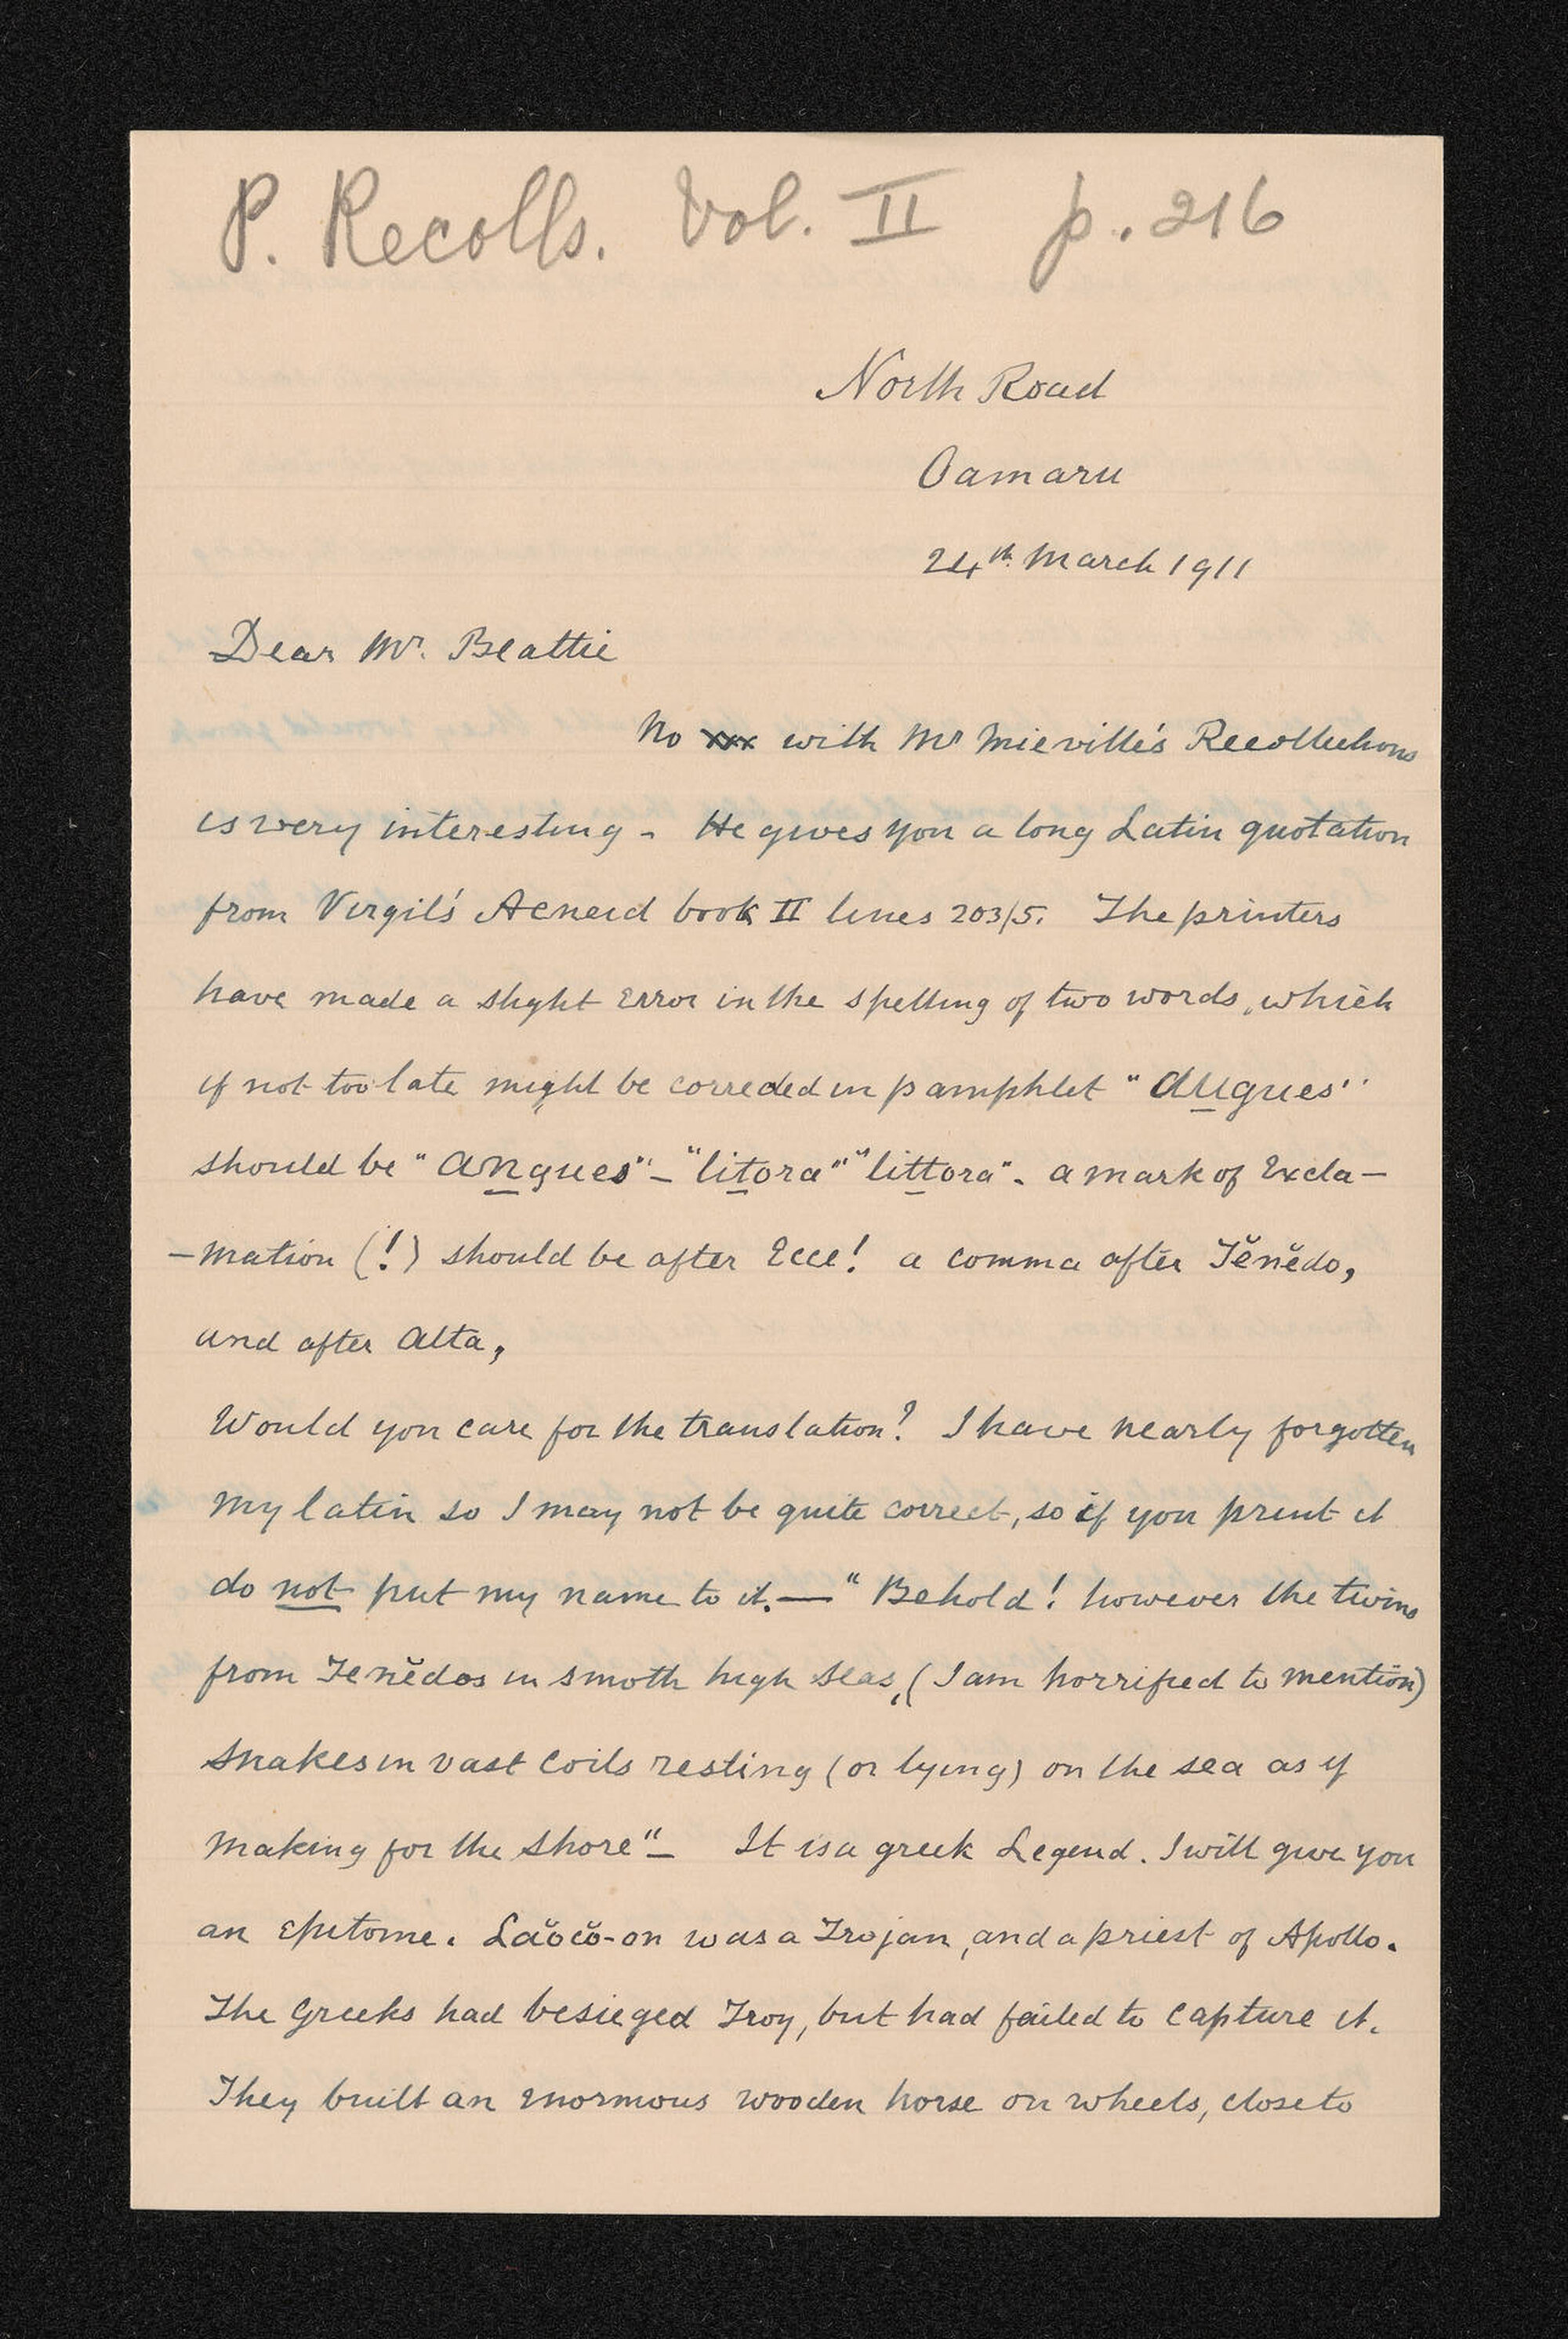 P. Recolls. Vol. II p. 216
North Road
Oamaru
24th March 1911
Dear Mr. Beattie
No xxx with Mr Mieville's Recollections
is very interesting - He gives you a long Latin quotation
from Virgil's Aeneid book II lines 203/5. The printers
have made a slight error in the spelling of two words, which
if not too late might be corrected in pamphlet "augues"
should be "angues" - "litora" "littora". a mark of Excla-
-mation (!) should be after Ecce! a comma after Tĕnĕdo,
and after Alta,
Would you care for the translation? I have nearly forgotten
my latin so I may not be quite correct, so if you print it
do not put my name to it. — "Behold! however the twins
from Tenĕdos in smoth high seas, (I am horrified to mention)
snakes in vast coils resting (or lying) on the sea as if
making for the shore" - It is a greek Legend. I will give you
an epitome. Laŏcŏ-on was a Trojan, and a priest of Apollo.
The Greeks had besieged Troy, but had failed to capture it.
They built an enormous wooden horse on wheels, close to